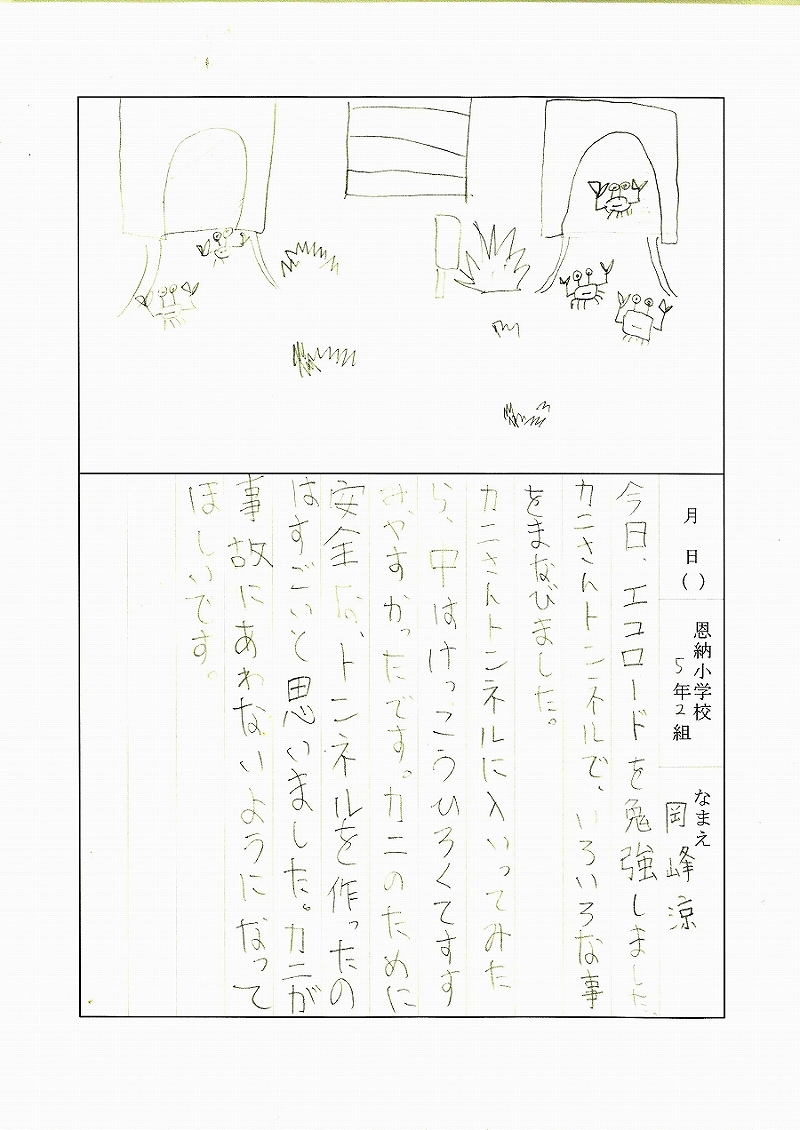 月　日（　）
恩納小学校
5年2組
なまえ
岡峰涼
今日、エコロードを勉強しました。
カニさんトンネルで、いろいろな事
をまなびました。
カニさんトンネルに入いってみた
ら、中はけっこうひろくてすす
みやすかったです。カニのために
安全な、トンネルを作ったの
はすごいと思いました。カニが
事故にあわないようになって
ほしいです。